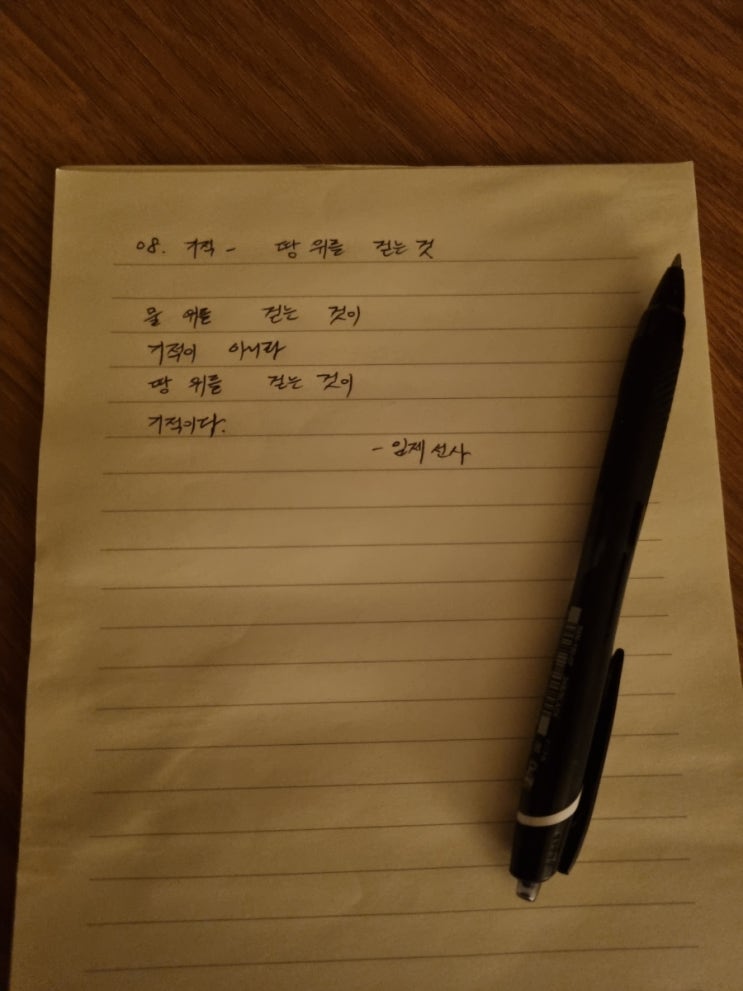 08. 기적 - 땅 위를 걷는 것
물 위를 걷는 것이
기적이 아니라
땅 위를 걷는 것이
기적이다.
- 임제 선사